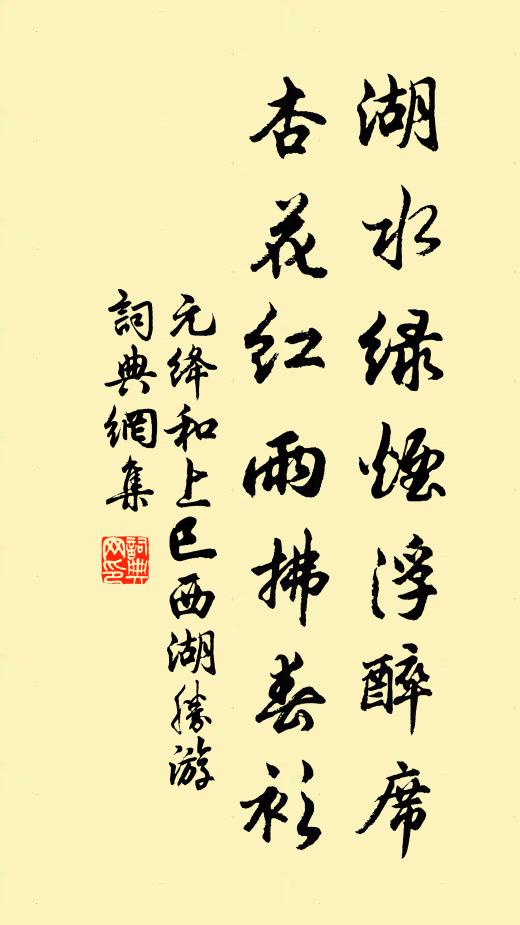 湖水绿煙浮醉席
杏花红雨拂春衫
元绛和上巳西湖勝游
詞典網集
詞典網印